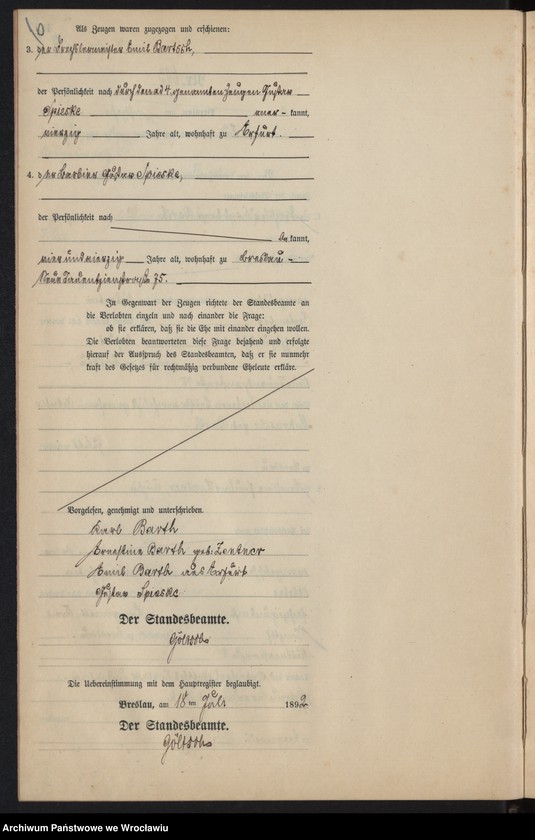 Als Zeugen waren zugezogen und erschienen:
3. der Drechslermeister Emil Bartsch,
der Persönlichkeit nach durch den ad 4. genannten Zeugen Gustav
Spieske aner- kannt,
vierzig Jahre alt, wohnhaft zu Erfurt.
4. der Barbier Gustav Spieske,
der Persönlichkeit nach
be kannt,
vier und vierzig Jahre alt, wohnhaft zu Breslau –
Neue Tauentzienstraße 75.
In Gegenwart der Zeugen richtete der Standesbeamte an
die Verlobten einzeln und nach einander die Frage:
ob sie erklären, daß sie die Ehe mit einander eingehen wollen.
Die Verlobten beantworteten diese Frage bejahend und erfolgte
hierauf der Ausspruch des Standesbeamten, daß er sie nunmehr
kraft des Gesetzes für rechtmäßig verbundene Eheleute erkläre.
Vorgelesen, genehmigt und unterschrieben.
Karl Barth
Ernestine Barth geb. Zentner
Emil Barth aus Erfurt
Gustav Spieske
Der Standesbeamte.
Die Uebereinstimmung mit dem Hauptregister beglaubigt.
Breslau, am 18ten Juli 1892
Der Standesbeamte.
Archiwum Państwowe we Wrocławiu